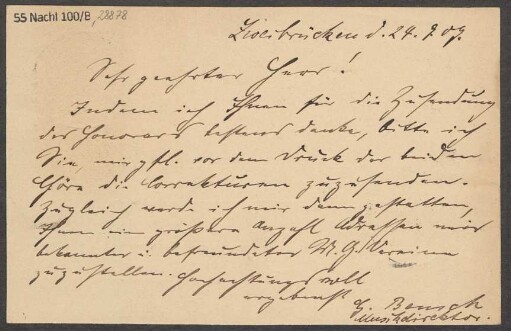 55 Nachl 100/B, 28878
Zweibrücken d. 24. 9 09.
Sehr geehrter Herr!
Indem ich Ihnen für die Zusendung
des Honorars bestens danke, bitte ich
Sie, mir gfl. vor dem Druck der beiden
Chöre die Correkturen zuzusenden.
Zugleich werde ich mir dann gestatten,
Ihnen eine größere Anzahl Adressen mir
bekannter u. befreundeter M. G. Vereine
zuzustellen. Hochachtungsvoll
ergebenst
Musikdirektor.